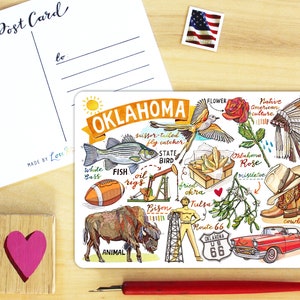 Post Card
to
MADE BY
OKLAHOMA
scissor-tailed
fly catcher
STATE
BIRD
FLOWER
Native
american
Oklahoma
Rose
White
Bass
FISH
oil
rigs
okra
mistletoe
Bison
Tulsa
Route 66
ANIMAL
OKLAHOMA
US
66